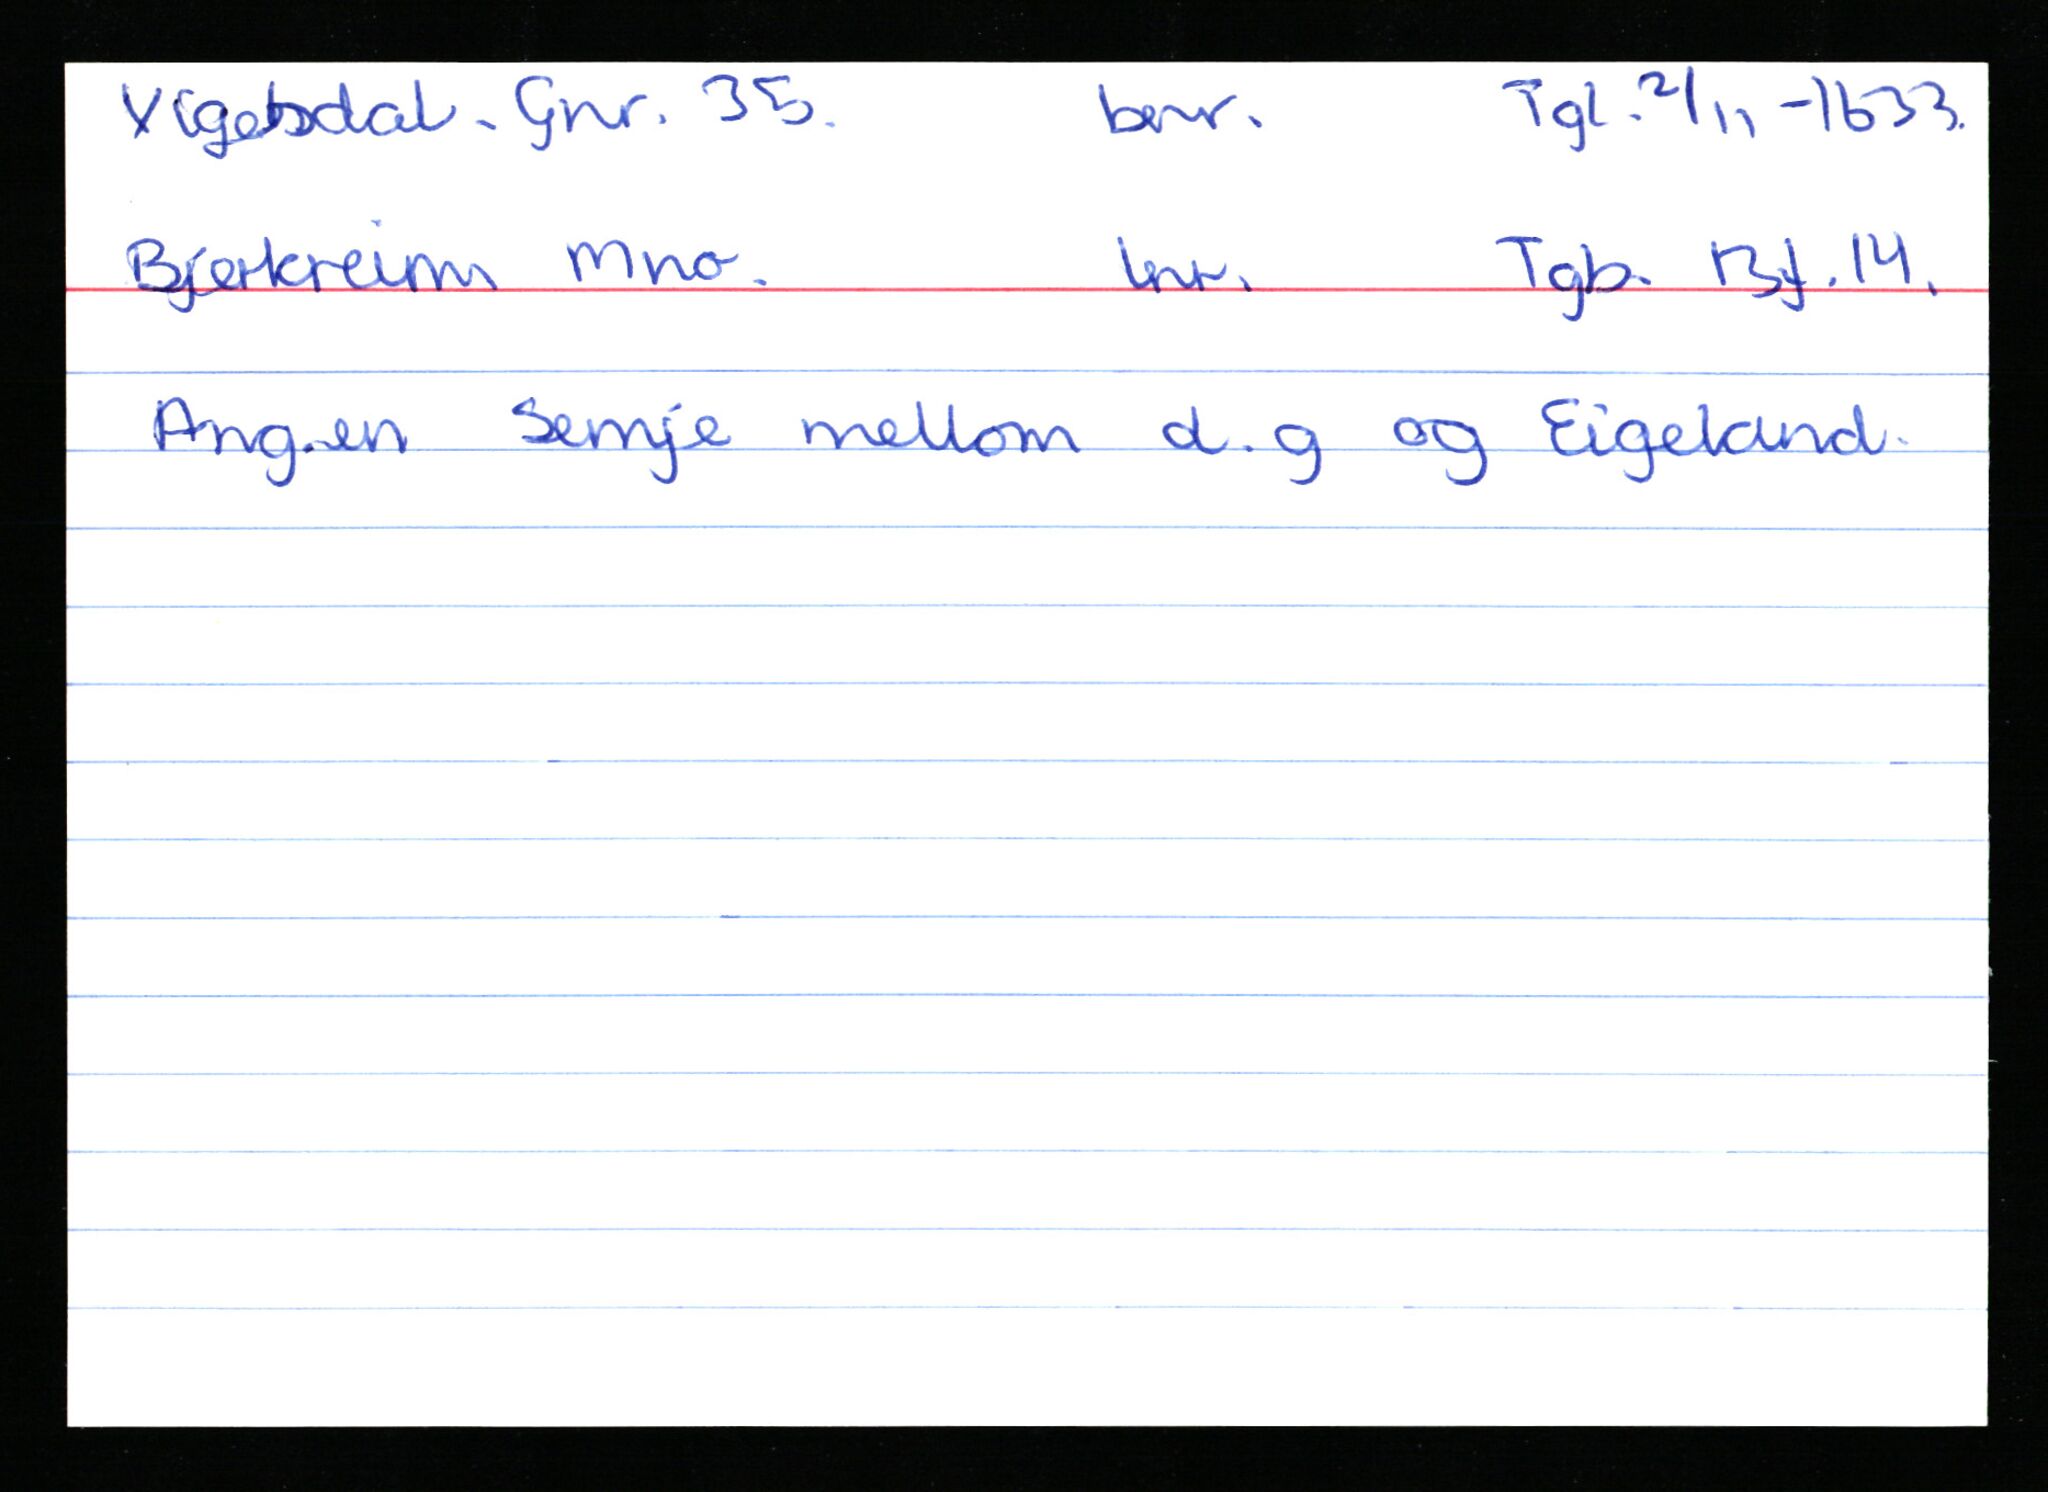 Vigesdal. Gnr. 35. bnr. Tgl. 2/11 -1633.
Bjerkreim Mno. lnr. Tgb. Bf. 14.
Ang. en Semje mellom d. g og Eigeland.